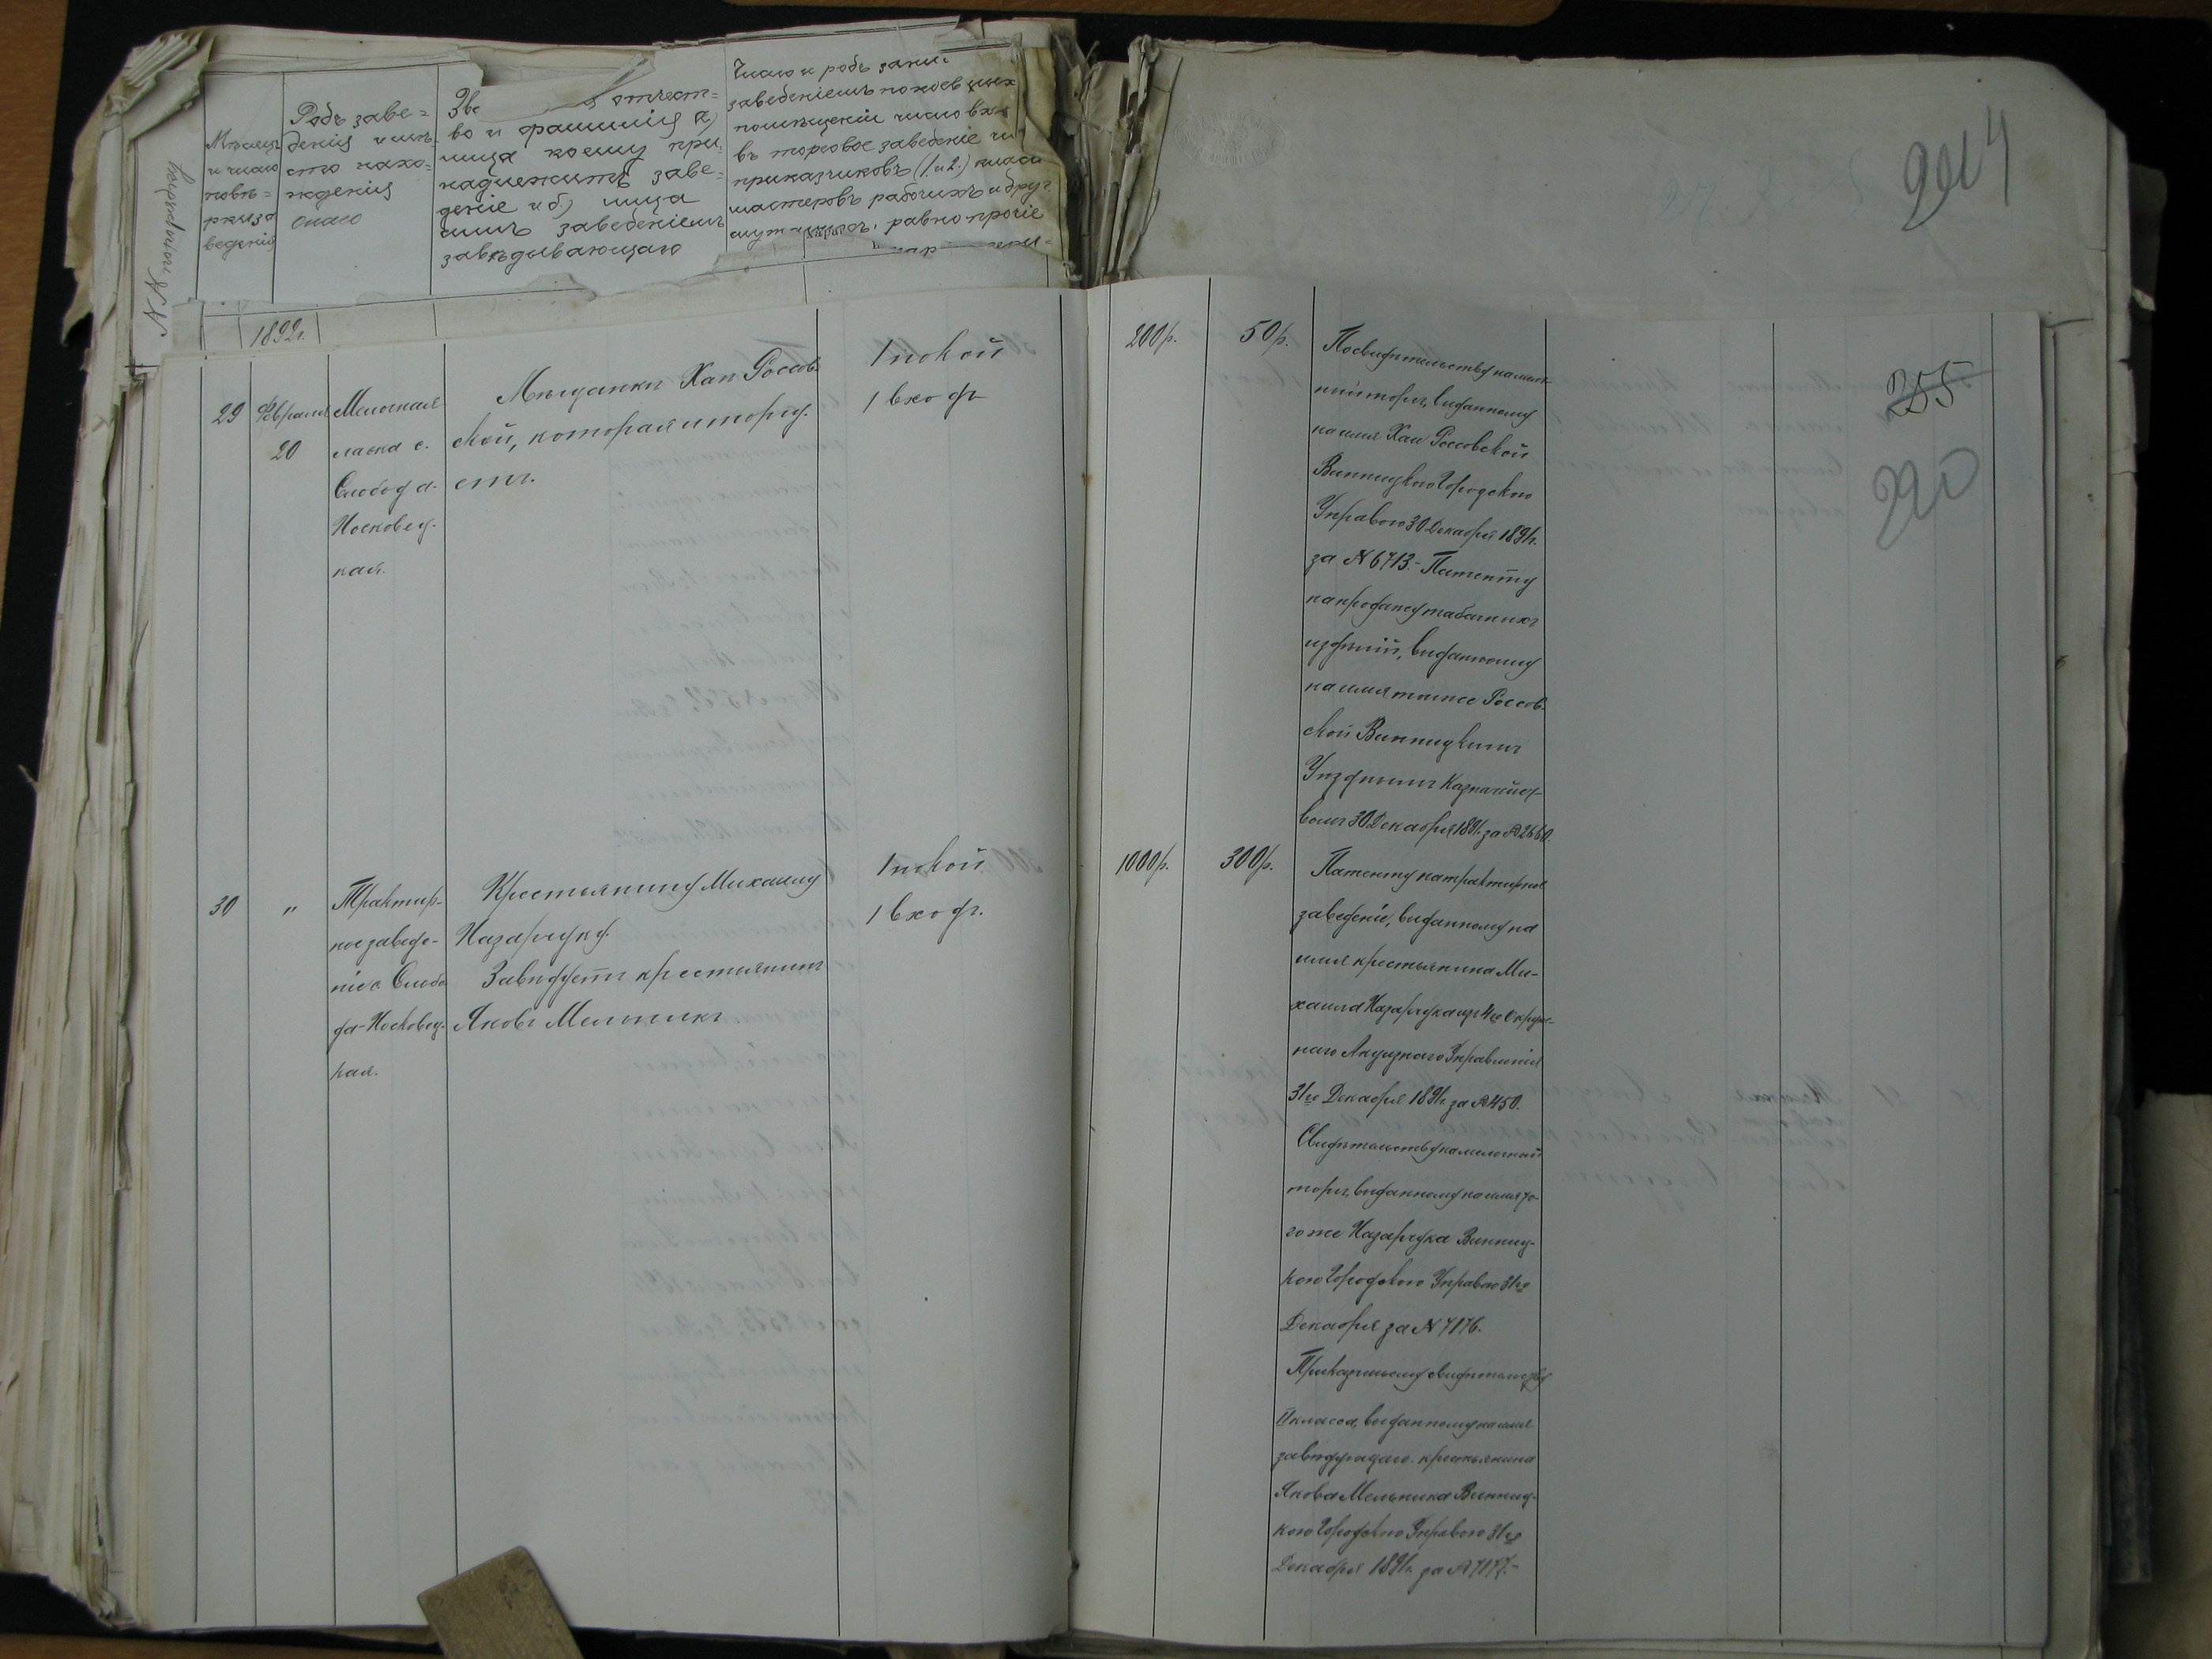 №№ попорядку
Мѣсяцъ
и число
повѣ=
рки за
веденій
Родъ заве=
денія и мѣ
сто нахо=
жденія
онаго
Зва отчест=
во и фамилія а)
лица коему при
надлежитъ заве=
деніе и б) лица
симъ заведеніемъ
завѣдывающаго
Число и родъ зани
заведеніемъ покоевъ
помѣщеній число вхо
въ торговое заведеніе
приказчиковъ (1 и 2) класс
мастеровъ рабочихъ и друг
равно прочіе
294
1892г.
29
Февраля
20
Мелочная
лавка с.
Слобода-
Носковец-
кая.
Мѣщанки Хаи Россов-
ской, которая и торгу-
етъ.
1 покой
1 входъ
200р.
50р.
По свидѣтельству на мелоч-
ный торгъ, выданному
на имя Хаи Россовской
Винницкою Городскою
Управою 30 Декабря 1891г.
за № 6713.- Патенту
на продажу табачныхъ
издѣлій, выданному
на имя тойже Россов-
ской Винницкимъ
Уѣзднымъ Казначейст-
вомъ 30 Декабря 1891г. за № 2460.
255
290
30
"
Трактир-
ное заведе-
ніе с. Слобо
да-Носковец-
кая.
Крестьянину Михаилу
Назарчуку.
Завѣдуетъ крестьянинъ
Яковъ Мельникъ
1 покой
1 входъ.
1000р.
300р.
Патенту на трактирное
заведеніе, выданному на
имя крестьянина Ми-
хаила Назарчука изъ 4го Окруж-
наго Акцизнаго Управленія
31го Декабря 1891г. за № 450.
Свидѣтельству на мелочный
торгъ, выданному на имя то-
гоже Назарчука Винниц-
кою Городскою Управою 31го
Декабря за № 7176.
Приказчичьему свидѣтельству
II класса, выданному на имя
завѣдующаго крестьянина
Якова Мельника Винниц-
кою Городскою Управою 31го
Декабря 1891г. за № 7177.-